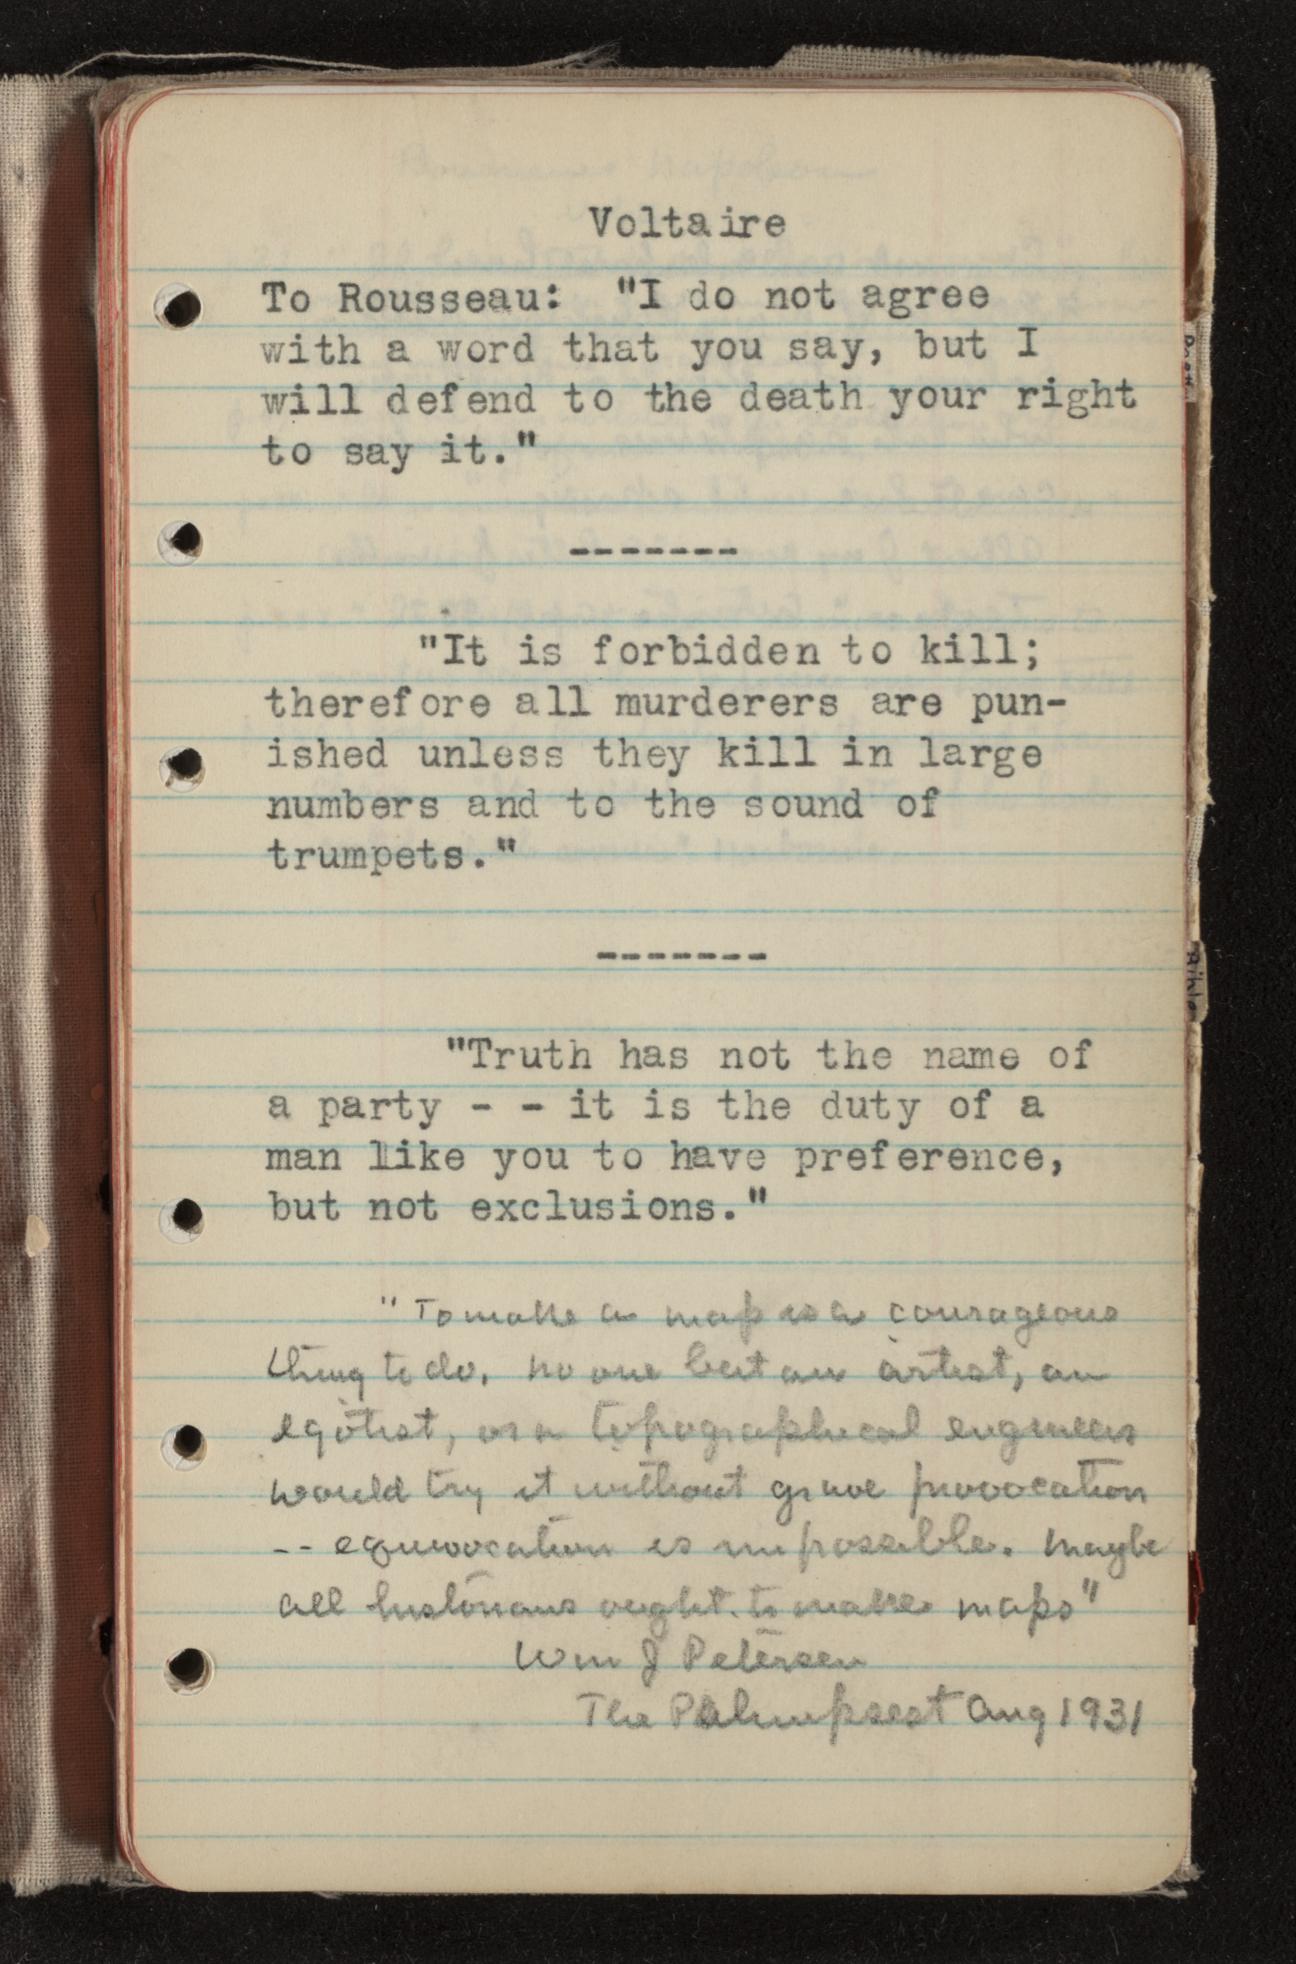 Voltaire
To Rousseau: "I do not agree
with a word that you say, but I
will defend to the death your right
to say it."
-------
"It is forbidden to kill;
therefore all murderers are pun-
ished unless they kill in large
numbers and to the sound of
trumpets."
-------
"Truth has not the name of
a party - - it is the duty of a
man like you to have preference,
but not exclusions."
"To make a map is a courageous
thing to do. No one but an artist, an
egotist, or a topographical engineer
would try it without grave provocation
-- equivocation is impossible. Maybe
all historians ought to make maps"
Wm J Petersen
The Palimpsest Aug 1931
Bible